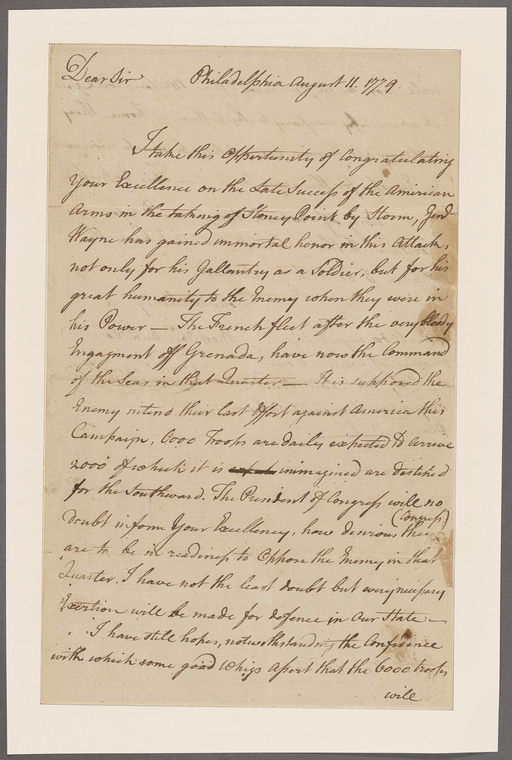 Dear Sir Philadelphia August 11. 1779.
I take this Opportunity of Congratulating
Your Excellence on the Late Success of the American
Arms in the taking of Stoney Point by Storm, Genl
Wayne has gained immortal honor in this Attack,
not only for his Gallantry as a Soldier, but for his
great humanity to the Enemy when they were in
his Power — The French fleet after the very bloody
Engagment off Grenada, have now the Command
of the Seas in that Quarter — It is supposed the
Enemy intend their last Effort against America this
Campaign, 6000 Troops are daily expected to arrive
2000 of which it is inimagined are destined
for the Southward. The President of Congress will no
doubt inform Your Excellency, how desirous they (Congress)
are to be in readiness to Oppose the Enemy in that
Quarter. I have not the least doubt but every necessary
Exertion will be made for defence in Our State —
I have still hopes, notwithstanding the Confidence
with which some good Whigs assert that the 6000 troops
will